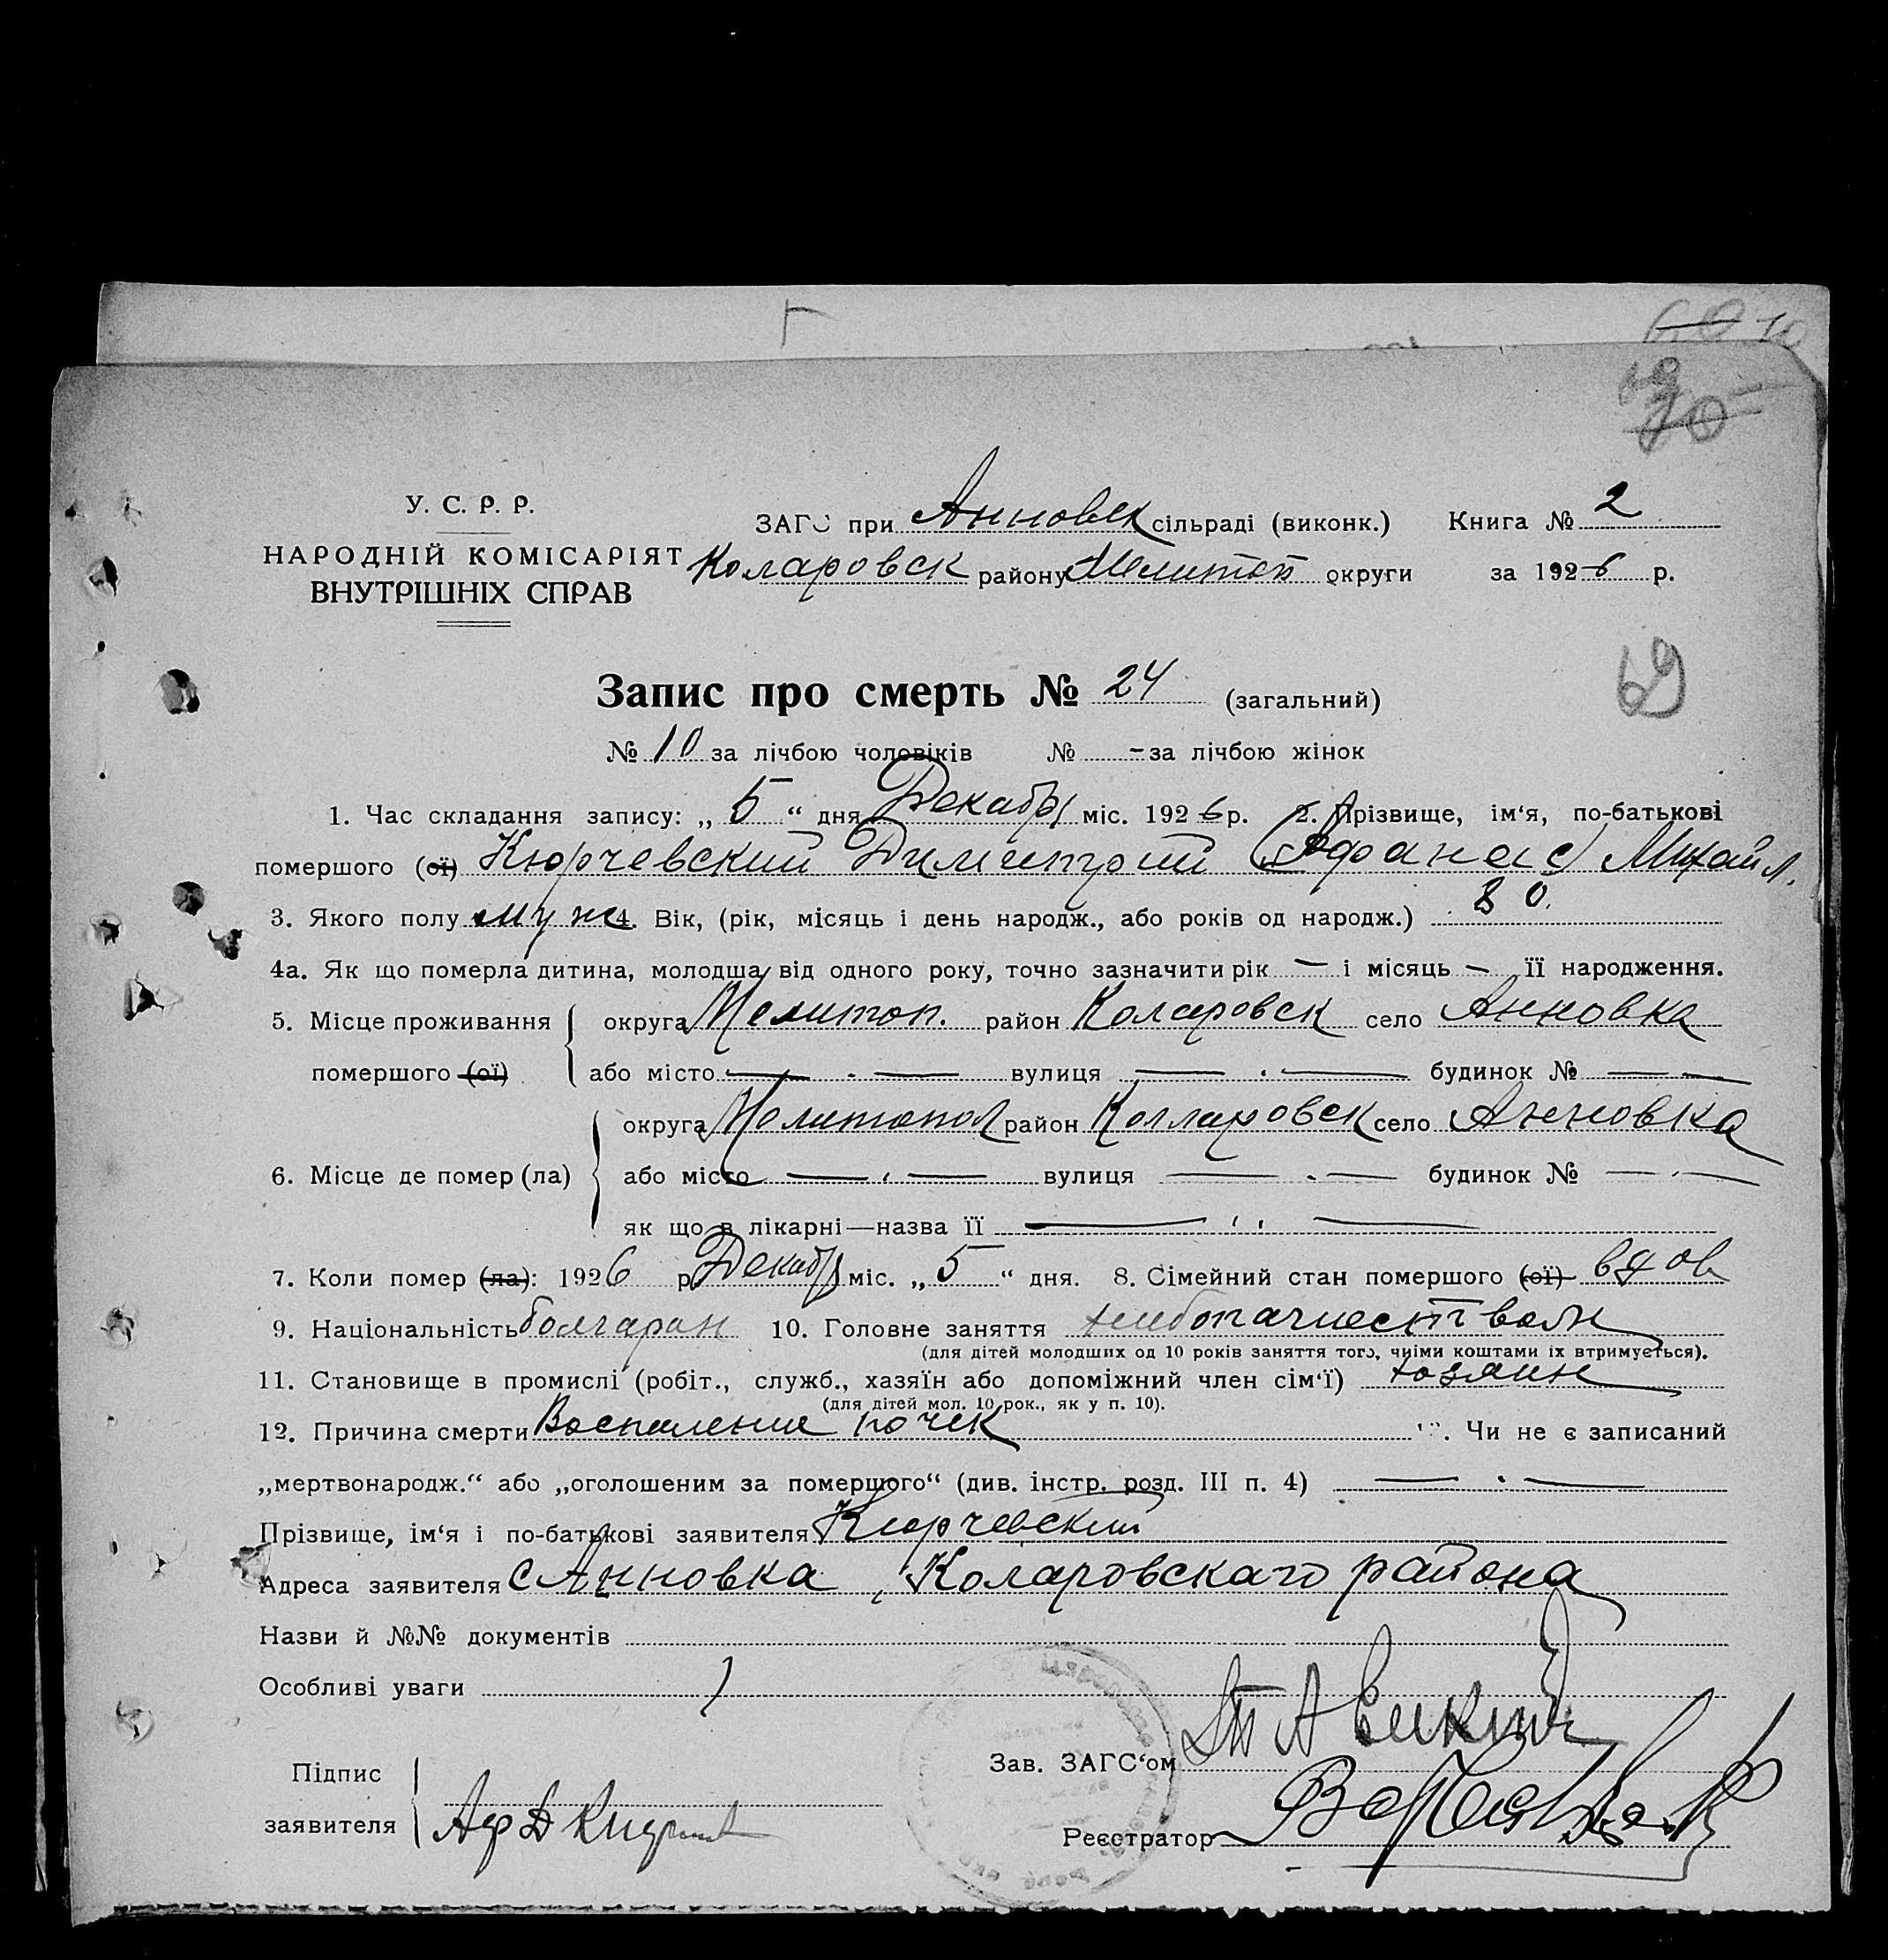 69 70
69
70
У. С. Р. Р.
НАРОДНІЙ КОМІСАРІЯТ
ВНУТРІШНІХ СПРАВ
ЗАГС при Анновск сільраді (виконк.) Книга № 2
Коларовск району Мелитоп округи за 1926 р.
69
Запис про смерть № 24 (загальний)
№ 10 за лічбою чоловіків № - за лічбою жінок
1. Час складання запису: „ 5 “ дня Декабр міс. 1926 р. 2. Прізвище, ім‘я, по-батькові
помершого (ої) Кюрчевский Димитрий (Афанас) Михайл.
3. Якого полу муж 4. Вік, (рік, місяць і день народж., або років од народж.) 80.
4а. Як що померла дитина, молодша від одного року, точно зазначити рік — і місяць — її народження.
5. Місце проживання округа Мелитоп. район Коларовск село Анновка
помершого (ої) або місто — . — вулиця — . — будинок № — —
округа Мелитопол район Колларовск село Анновка
6. Місце де помер (ла) або місто — . — вулиця — . — будинок № — . —
як що в лікарні—назва її — —
7. Коли помер (ла): 1926 р. Декабр міс. „ 5 “ дня. 8. Сімейний стан помершого (ої) вдов
9. Національність болгарин 10. Головне заняття хлебопачест волн
(для дітей молодших од 10 років заняття того, чиїми коштами їх втримується).
11. Становище в промислі (робіт., служб., хазяїн або допоміжний член сім‘ї) хозяин
(для дітей мол. 10 рок., як у п. 10).
12. Причина смерти Воспаление почек 13. Чи не є записаний
„мертвонародж.“ або „оголошеним за помершого“ (див. інстр. розд. III п. 4) — . —
Прізвище, ім‘я і по-батькові заявителя Кюрчевский
Адреса заявителя с Анновка, Коларовскаго района
Назви й №№ документів
Особливі уваги
Зав. ЗАГС‘ом
Підпис
заявителя
Реєстратор